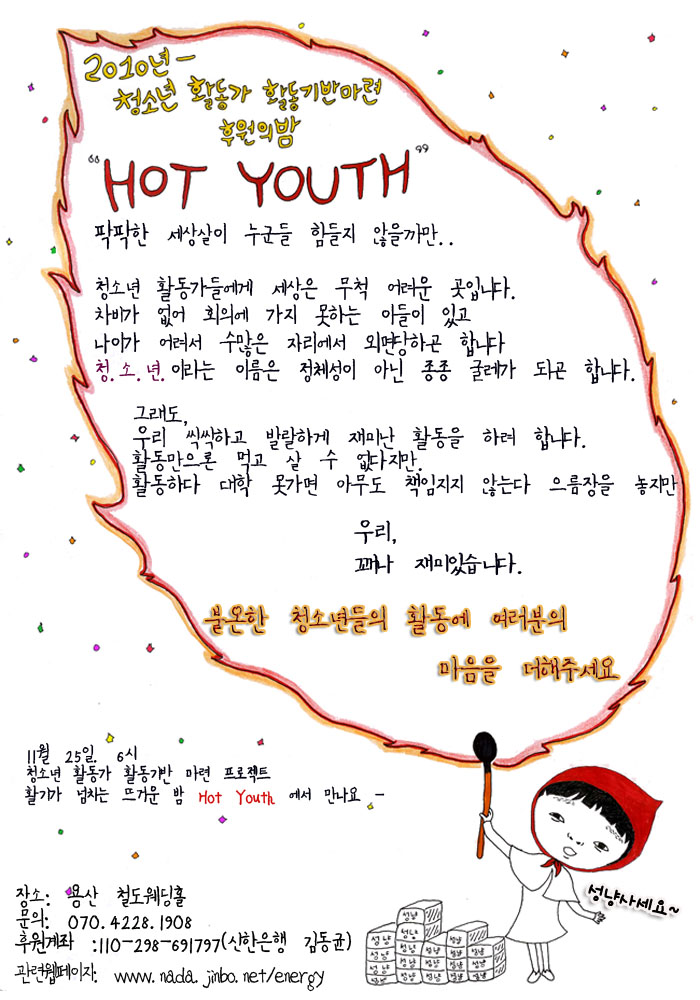 2010년-
청소년 활동가 활동기반마련
후원의밤
"HOT YOUTH"
팍팍한 세상살이 누군들 힘들지 않을까만..
청소년 활동가들에게 세상은 무척 어려운 곳입니다.
차비가 없어 회의에 가지 못하는 아들이 있고
나이가 어려서 수많은 자리에서 외면당하곤 합니다
청.소.년.이라는 이름은 정체성이 아닌 종종 굴레가 되곤 합니다.
그래도,
우리 씩씩하고 발랄하게 재미난 활동을 하려 합니다.
활동만으론 먹고 살 수 없다지만.
활동하다 대학 못가면 아무도 책임지지 않는다 으름장을 놓지만
우리,
꽤나 재미있습니다.
불온한 청소년들의 활동에 여러분의
마음을 더해주세요
11월 25일. 6시
청소년 활동가 활동기반 마련 프로젝트
활기가 넘치는 뜨거운 밤 Hot Youth 에서 만나요 -
성냥사세요~
장소: 용산 철도웨딩홀
문의: 070.4228.1908
후원계좌 :110-298-691797(신한은행 김동균)
관련웹페이지: www.nada.jinbo.net/energy
성냥
성냥 성냥 성냥 성냥
성냥 성냥 성냥 성냥 성냥